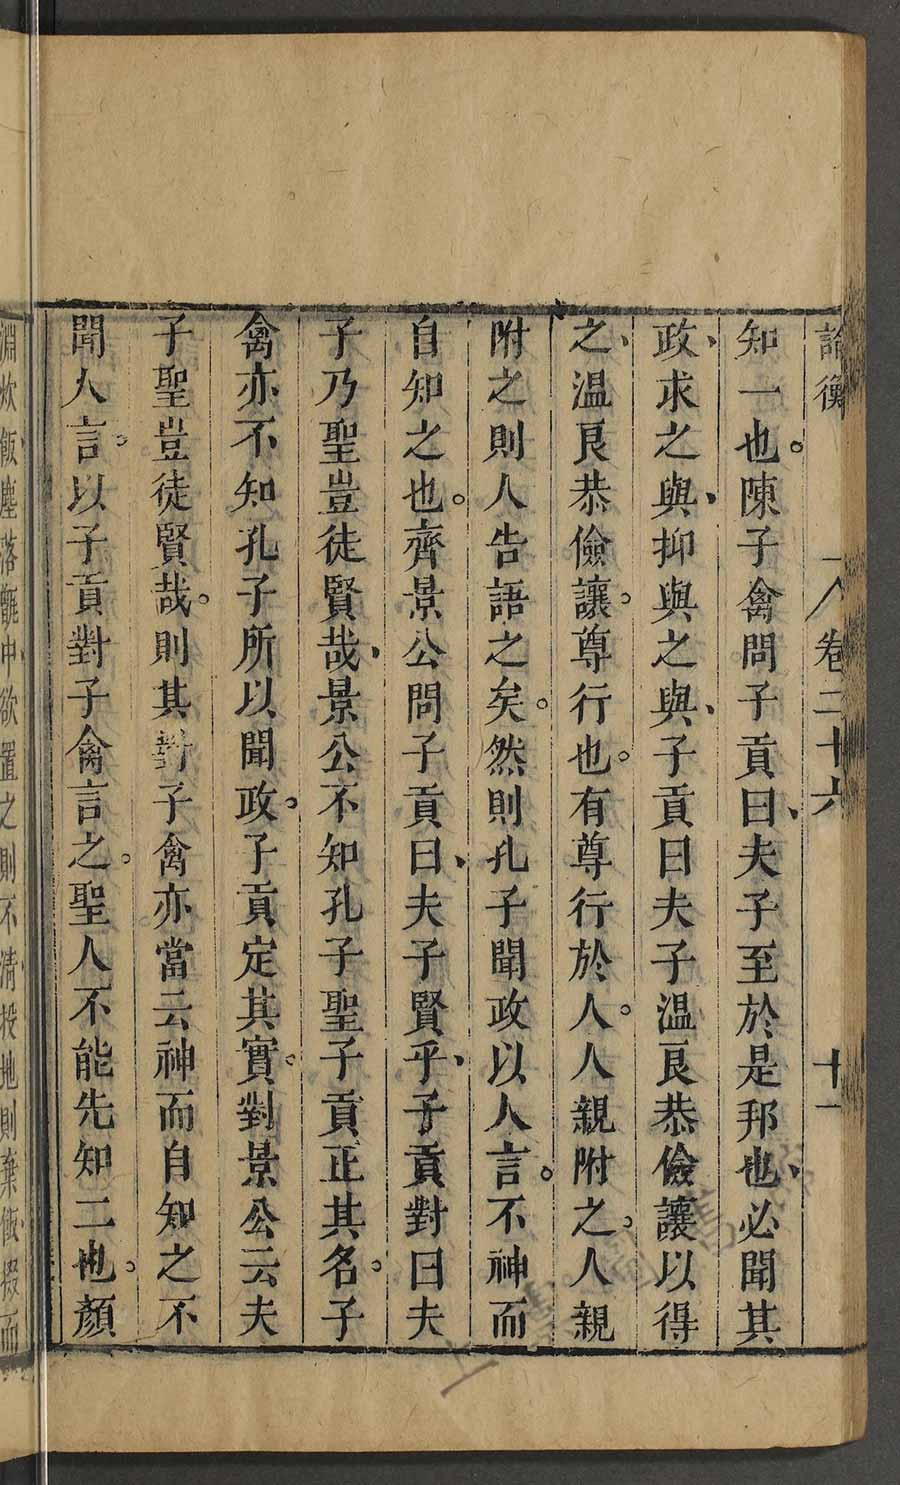 論衡 卷二十六 十一
知一也。陳子禽問子貢曰、夫子至於是邦也、必聞其
政、求之與、抑與之與、子貢曰夫子温良恭儉讓以得
之、温良恭儉讓。尊行也。有尊行於人。人親附之。人親
附之則人告語之矣。然則孔子聞政以人言。不神而
自知之也。齊景公問子貢曰、夫子賢乎、子貢對曰夫
子乃聖豈徒賢哉、景公不知孔子聖子貢正其名。子
禽亦不知孔子所以聞政。子貢定其實。對景公云夫
子聖豈徒賢哉。則其對子禽亦當云神而自知之不
聞人言。以子貢對子禽言之。聖人不能先知二也。顏
淵炊飯塵落甑中欲置之則不清投地則棄飯掇而